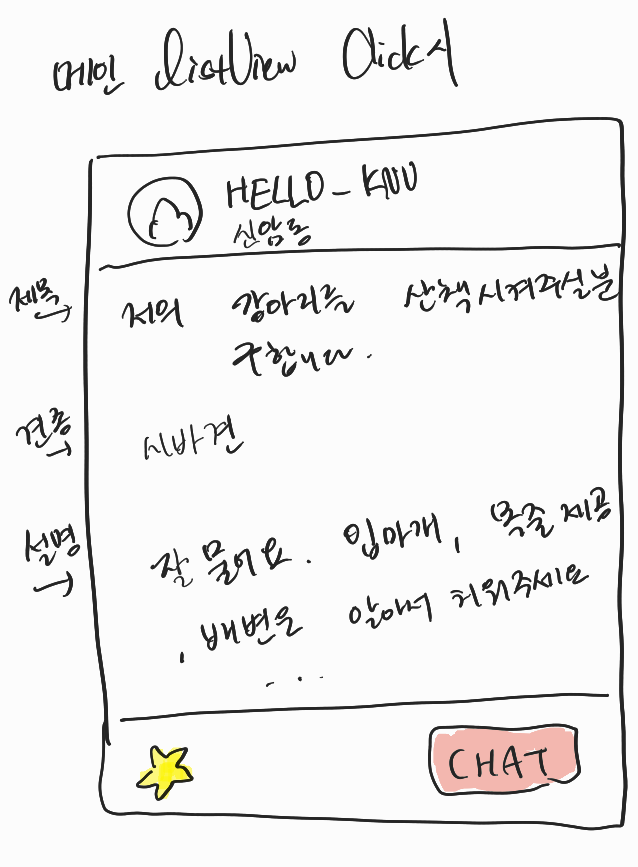 메인 ListView Click시
HELLO_KNU
신암동
제목 → 저의 강아리를 산책시켜주실분
구합니다.
견종 → 시바견
설명 → 잘 물어요. 입마개, 목줄 제공
, 배변은 알아서 치워주세요
...
CHAT